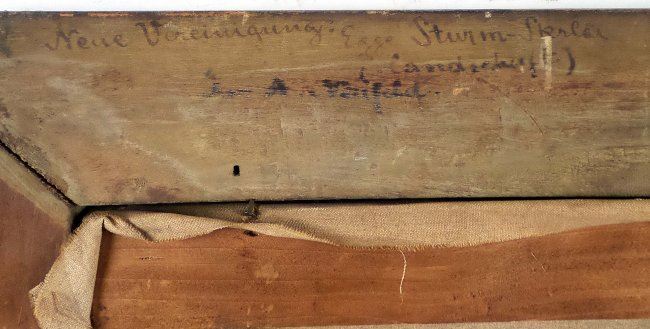 Neue Vereinigung: Egge Sturm-Skrla
(Landschaft)